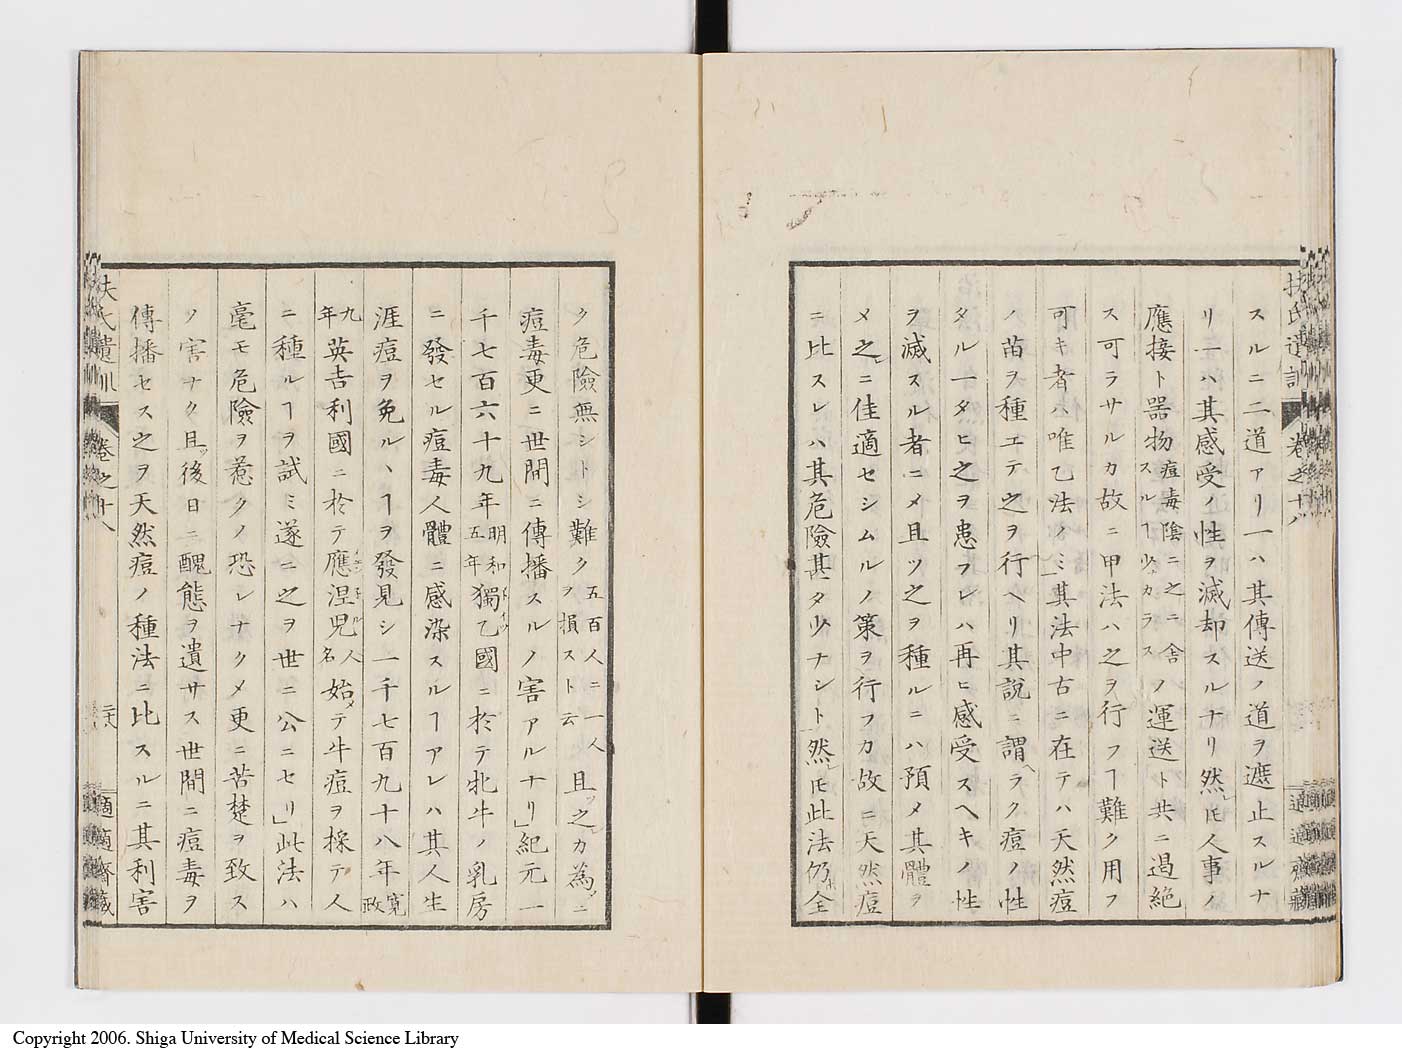 扶氏遺訓
卷之十八
適適齋藏
スルニ二道アリ一ハ其傳送ノ道ヲ遮止スルナ
リ一ハ其感受ノ性ヲ滅却スルナリ然レ𪜈人事ノ
應接ト器物痘毒陰ニ之ニ舎スルヿ少カラスノ運送ト共ニ遏絶
ス可ラサルカ故ニ甲法ハ之ヲ行フヿ難ク用フ
可キ者ハ唯乙法ノミ其法中古ニ在テハ天然痘
ノ苗ヲ種エテ之ヲ行ヘリ其説ニ謂ヘラク痘ノ性
タル一タヒ之ヲ患フレハ再ヒ感受スヘキノ性
ヲ滅スル者ニメ且ツ之ヲ種ルニハ預メ其體ヲ
メ之ニ佳適セシムルノ策ヲ行フカ故ニ天然痘
ニ比スレハ其危險甚タ少ナシト然レ𪜈此法仍ホ全
ク危險無シトシ難ク五百人ニ一人ヲ損スト云且ツ之カ為メニ
痘毒更ニ世間ニ傳播スルノ害アルナリ」紀元一
千七百六十九年明和五年獨乙國ニ於テ牝牛ノ乳房
ニ發セル痘毒人體ニ感染スルヿアレハ其人生
涯痘ヲ免ルヽヿヲ發見シ一千七百九十八年寛政
九年英吉利國ニ於テ應涅兒人名始メテ牛痘ヲ採テ人
ニ種ルヿヲ試ミ遂ニ之ヲ世ニ公ニセリ」此法ハ
毫モ危險ヲ惹クノ恐レナクメ更ニ苦楚ヲ致ス
ノ害ナク且ツ後日ニ醜態ヲ遺サス世間ニ痘毒ヲ
傳播セス之ヲ天然痘ノ種法ニ比スルニ其利害
扶氏遺訓
卷之十八
二十六
適適齋藏
Copyright 2006. Shiga University of Medical Science Library